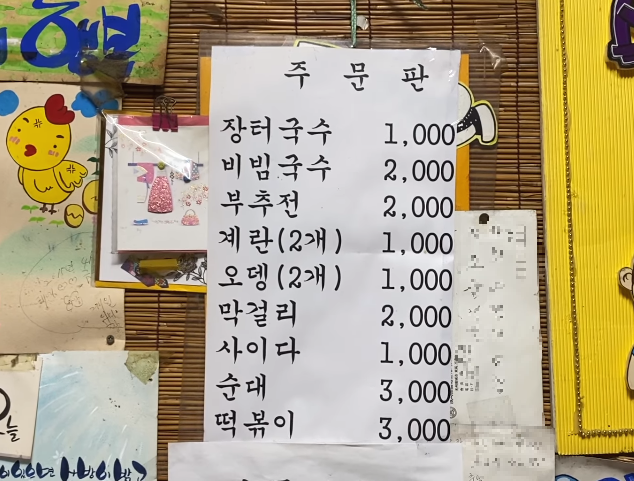 행복
주 문 판
장터국수 1,000
비빔국수 2,000
부추전 2,000
계란(2개) 1,000
오뎅(2개) 1,000
막걸리 2,000
사이다 1,000
순대 3,000
떡볶이 3,000